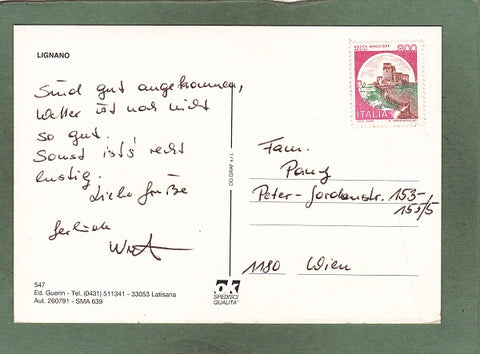 LIGNANO
Sind gut angekommen,
Wetter ist noch nicht
so gut.
Sonst ist's recht
lustig.
Liebe Grüße
547
Ed. Guerin - Tel. (0431) 511341 - 33053 Latisana
Aut. 260791 - SMA 639
CO.GRAF s.r.l.
OK
SPEDISCI
QUALITA'
ROCCA MAGGIORE
800
ITALIA
Fam.
Peter-Jordanstr. 153-,
155/5
1180 Wien